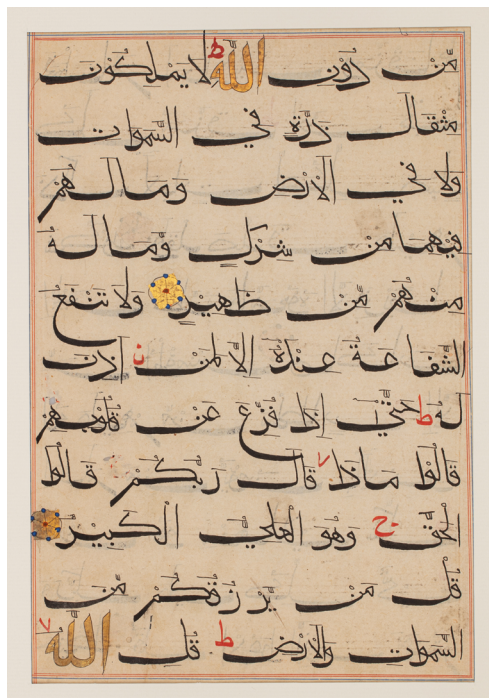 مِّنْ دُوْنِ اللّٰهِ ط لا يَمْلِكُوْنَ
مِثْقَالَ ذَرَّةٍ فِي السَّمٰوَاتِ
وَلَا فِي الْاَرْضِ وَمَا لَهُمْ
فِيْهِمَا مِنْ شِرْكٍ وَّمَا لَهُ
مِنْهُمْ مِّنْ ظَهِيْرٍ وَلَا تَنْفَعُ
الشَّفَاعَةُ عِنْدَهُ اِلَّا لِمَنْ اَذِنَ
لَهُ ط حَتّٰى اِذَا فُزِّعَ عَنْ قُلُوْبِهِمْ
قَالُوْا مَاذَا قَالَ رَبُّكُمْ قَالُوا
الْحَقَّ ج وَهُوَ الْعَلِيُّ الْكَبِيْرُ
قُلْ مَنْ يَّرْزُقُكُمْ مِّنَ
السَّمٰوَاتِ وَالْاَرْضِ ط قُلِ اللّٰهُ